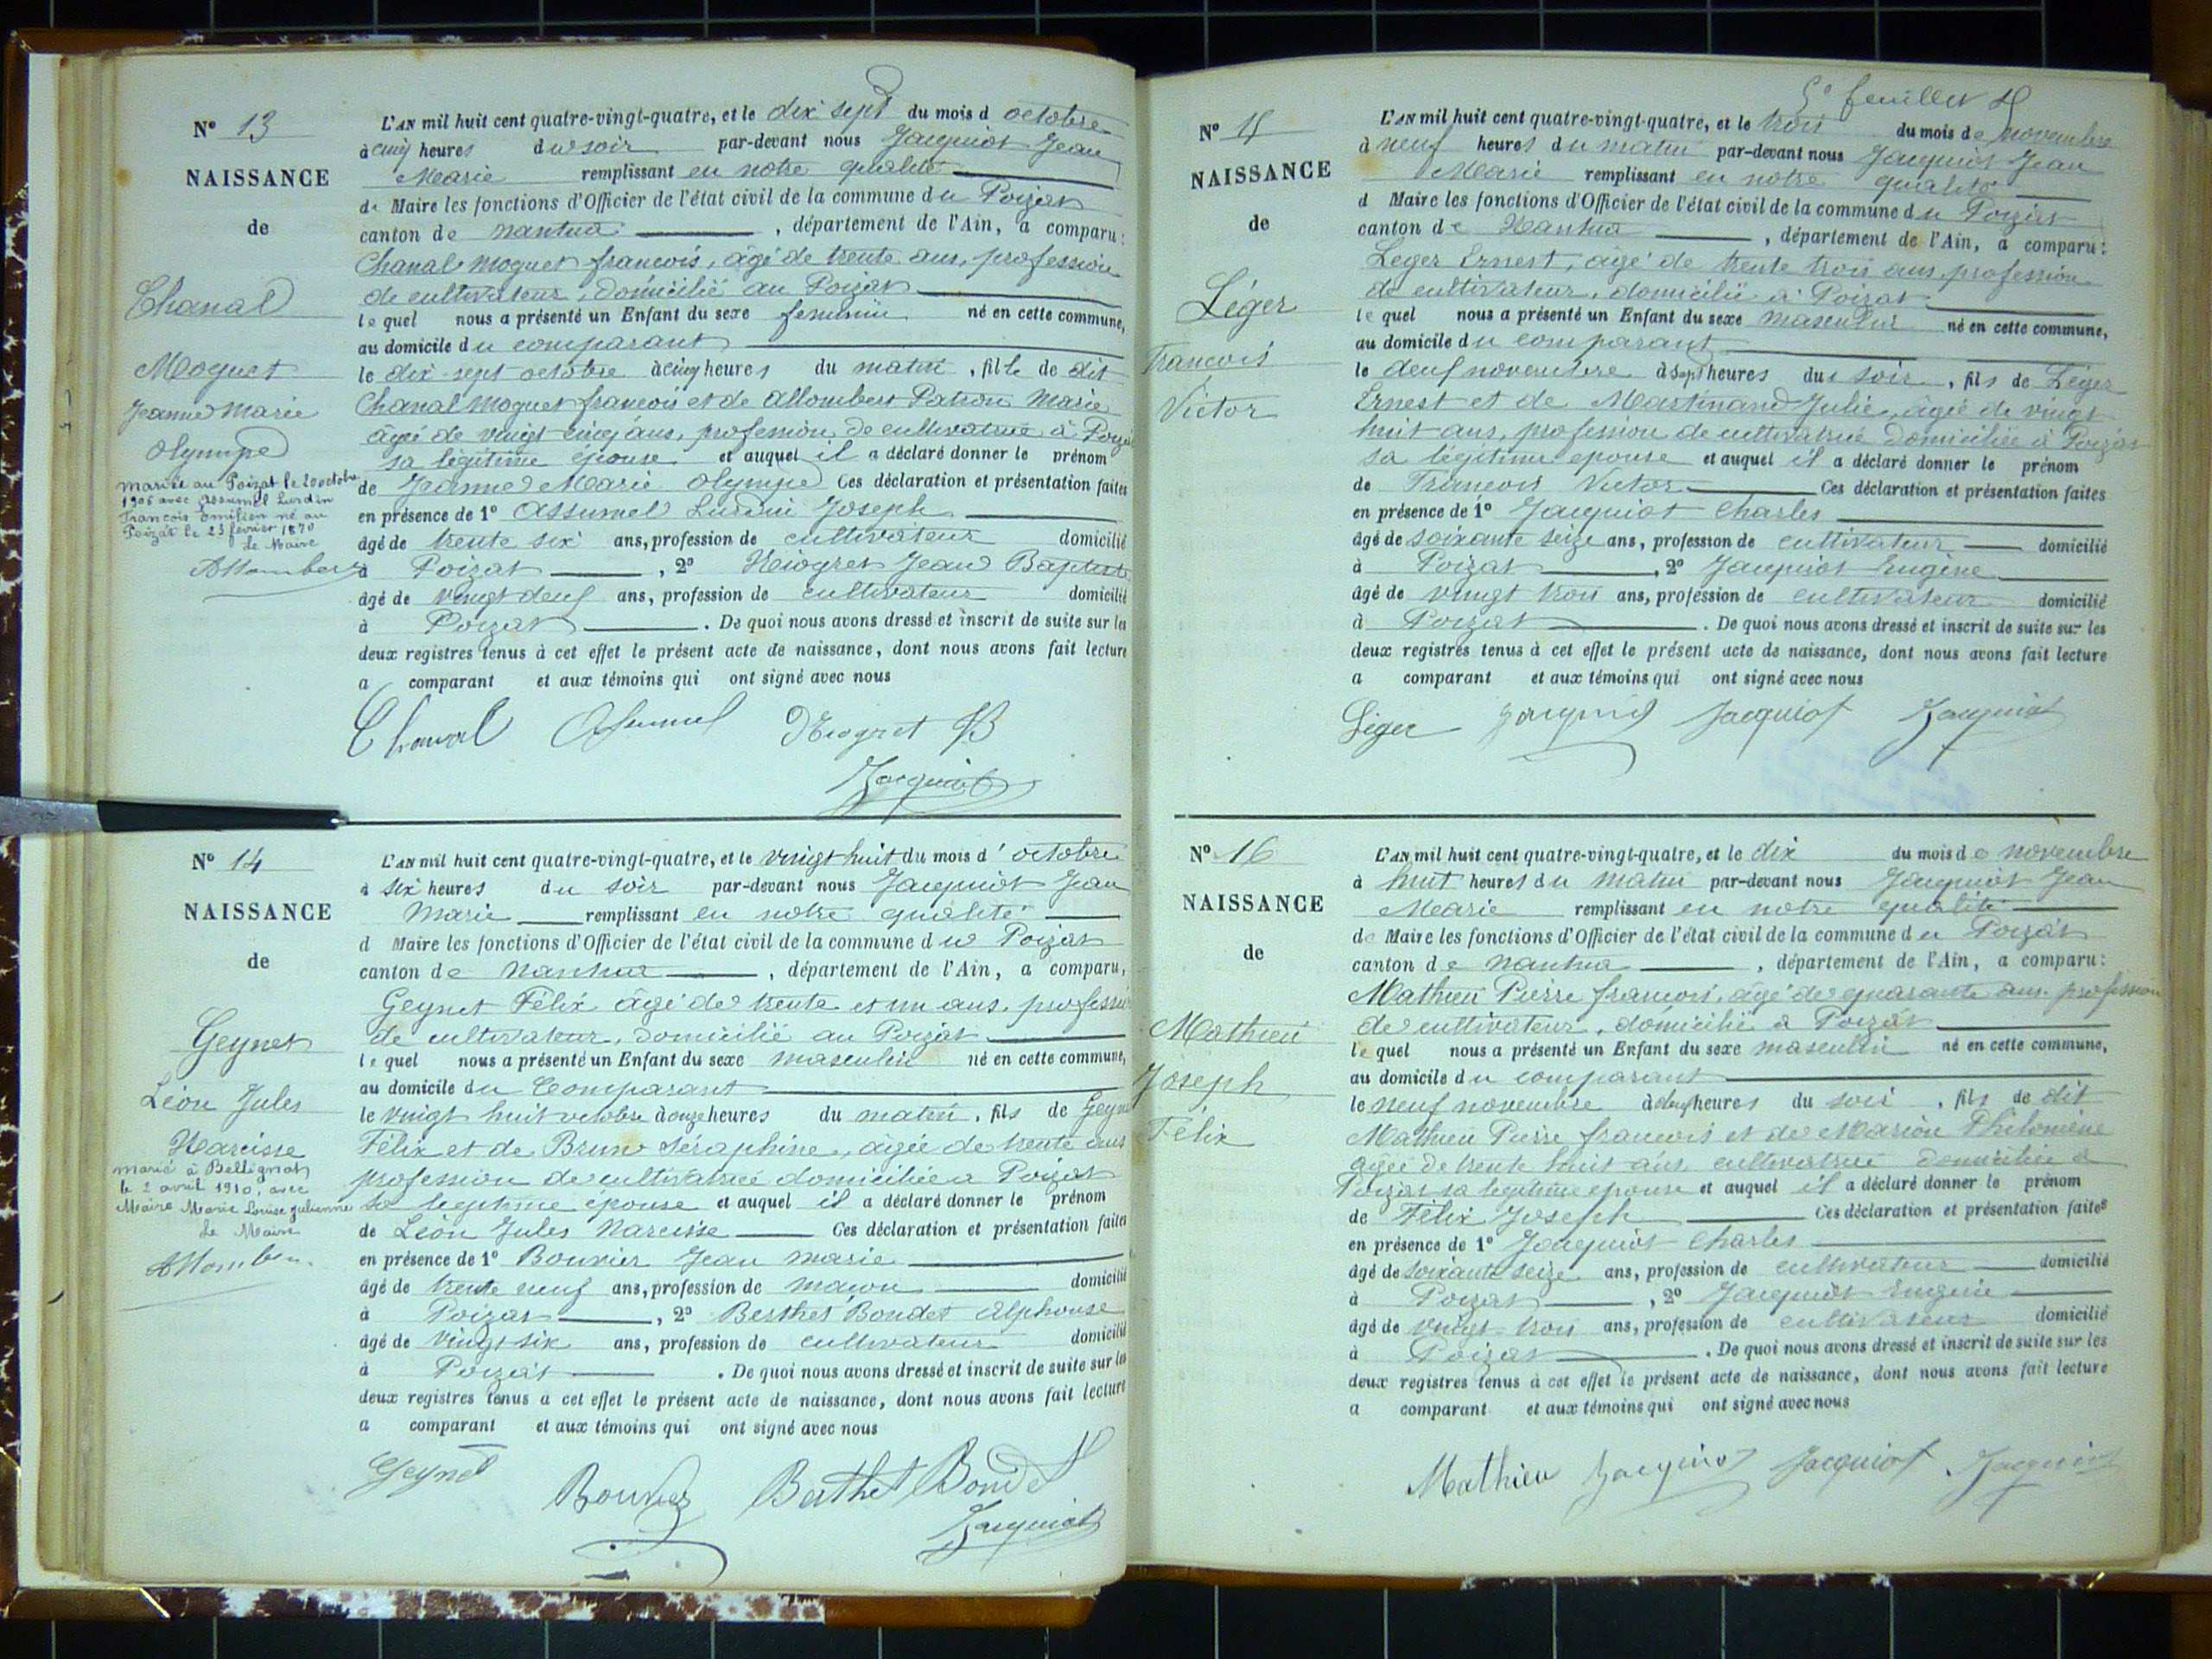 N° 13
NAISSANCE
de
Chanal
Moguet
Jeanne Marie
Olympe
mariée au Poizat le 20 octobre
1906 avec Assumel Lurdin
François Emilien né au
Poizat le 23 février 1870
Le Maire
Allombert
L'AN mil huit cent quatre-vingt-quatre, et le dix sept du mois d octobre
à cinq heures du soir par-devant nous Jacquiot Jean
Marie remplissant en notre qualité
de Maire les fonctions d'Officier de l'état civil de la commune du Poizat
canton de Nantua, département de l'Ain, a comparu :
Chanal Moguet françois, âgé de trente ans, profession
de cultivateur, domicilié au Poizat
lequel nous a présenté un Enfant du sexe feminin né en cette commune,
au domicile du comparant
le dix-sept octobre à cinq heures du matin, fille de dit
Chanal Moguet françois et de Allombert Patron Marie
âgée de vingt cinq ans, profession de cultivatrice à Poizat
sa légitime épouse et auquel il a déclaré donner le prénom
de Jeanne Marie Olympe Ces déclaration et présentation faites
en présence de 1° Assumel Lurdin Joseph
âgé de trente six ans, profession de cultivateur domicilié
à Poizat, 2° Niogret Jean Baptiste
âgé de vingt deux ans, profession de cultivateur domicilié
à Poizat. De quoi nous avons dressé et inscrit de suite sur les
deux registres tenus à cet effet le présent acte de naissance, dont nous avons fait lecture
a comparant et aux témoins qui ont signé avec nous
Chanal Assumel Niogret JB
Jacquiot
N° 14
NAISSANCE
de
Geynet
Léon Jules
Narcisse
marié à Bellignat
le 2 avril 1910, avec
Maire Marie Louise Julienne
Le Maire
Allombert
L'AN mil huit cent quatre-vingt-quatre, et le vingt huit du mois d' octobre
à six heures du soir par-devant nous Jacquiot Jean
Marie remplissant en notre qualité
d Maire les fonctions d'Officier de l'état civil de la commune du Poizat
canton de Nantua, département de l'Ain, a comparu,
Geynet Félix âgé de trente et un ans, profession
de cultivateur, domicilié au Poizat
lequel nous a présenté un Enfant du sexe masculin né en cette commune,
au domicile du Comparant
le vingt huit octobre à onze heures du matin, fils de Geynet
Félix et de Brun Séraphine, âgée de trente ans
profession de cultivatrice domiciliée a Poizat
sa legitime épouse et auquel il a déclaré donner le prénom
de Léon Jules Narcisse Ces déclaration et présentation faites
en présence de 1° Bouvier Jean Marie
âgé de trente neuf ans, profession de maçon domicilié
à Poizat, 2° Berthet Bondet Alphonse
âgé de vingt six ans, profession de cultivateur domicilié
à Poizat. De quoi nous avons dressé et inscrit de suite sur les
deux registres tenus à cet effet le présent acte de naissance, dont nous avons fait lecture
a comparant et aux témoins qui ont signé avec nous
Geynet Bouvier Berthet Bondet
Jacquiot
5e feuillet
N° 15
NAISSANCE
de
Léger
Francois
Victor
L'AN mil huit cent quatre-vingt-quatre, et le trois du mois de novembre
à neuf heures du matin par-devant nous Jacquiot Jean
Marie remplissant en notre qualité
d Maire les fonctions d'Officier de l'état civil de la commune du Poizat
canton de Nantua, département de l'Ain, a comparu :
Leger Ernest, âgé de trente trois ans, profession
de cultivateur, domicilié à Poizat
lequel nous a présenté un Enfant du sexe masculin né en cette commune,
au domicile du comparant
le deuf novembre à sept heures du soir, fils de Léger
Ernest et de Martinand Julie, âgée de vingt
huit ans, profession de cultivatrice domiciliée à Poizat
sa legitime epouse et auquel il a déclaré donner le prénom
de Francois Victor Ces déclaration et présentation faites
en présence de 1° Jacquiot Charles
âgé de soixante seize ans, profession de cultivateur domicilié
à Poizat, 2° Jacquiot Eugène
âgé de vingt trois ans, profession de cultivateur domicilié
à Poizat. De quoi nous avons dressé et inscrit de suite sur les
deux registres tenus à cet effet le présent acte de naissance, dont nous avons fait lecture
a comparant et aux témoins qui ont signé avec nous
Léger Jacquiot Jacquiot Jacquiot
N° 16
NAISSANCE
de
Mathieu
Joseph
Félix
L'AN mil huit cent quatre-vingt-quatre, et le dix du mois de novembre
à huit heures du matin par-devant nous Jacquiot Jean
Marie remplissant en notre qualité
de Maire les fonctions d'Officier de l'état civil de la commune du Poizat
canton de Nantua, département de l'Ain, a comparu :
Mathieu Pierre françois, âgé de quarante ans, profession
de cultivateur, domicilié à Poizat
lequel nous a présenté un Enfant du sexe masculin né en cette commune,
au domicile du comparant
le neuf novembre à heures du soir, fils de dit
Mathieu Pierre françois et de Marion Philomène
agée de trente huit ans cultivatrice domiciliée à
Poizat sa legitime epouse et auquel il a déclaré donner le prénom
de Félix Joseph Ces déclaration et présentation faites
en présence de 1° Jacquiot Charles
âgé de soixante seize ans, profession de cultivateur domicilié
à Poizat, 2° Jacquiot Eugène
âgé de vingt trois ans, profession de cultivateur domicilié
à Poizat. De quoi nous avons dressé et inscrit de suite sur les
deux registres tenus à cet effet le présent acte de naissance, dont nous avons fait lecture
a comparant et aux témoins qui ont signé avec nous
Mathieu Jacquiot Jacquiot Jacquiot